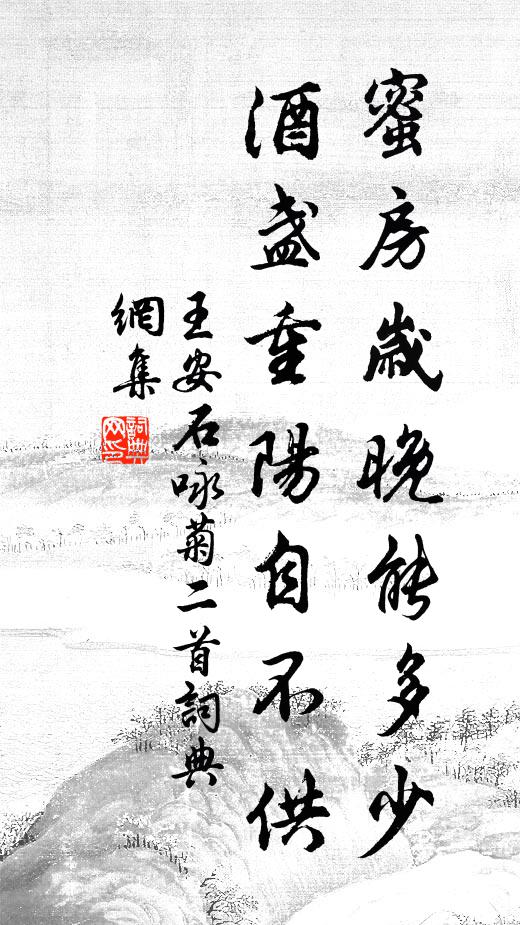 蜜房歲晚能多少
酒盞重陽自不供
王安石咏菊二首詞典
網集
詞典
网印